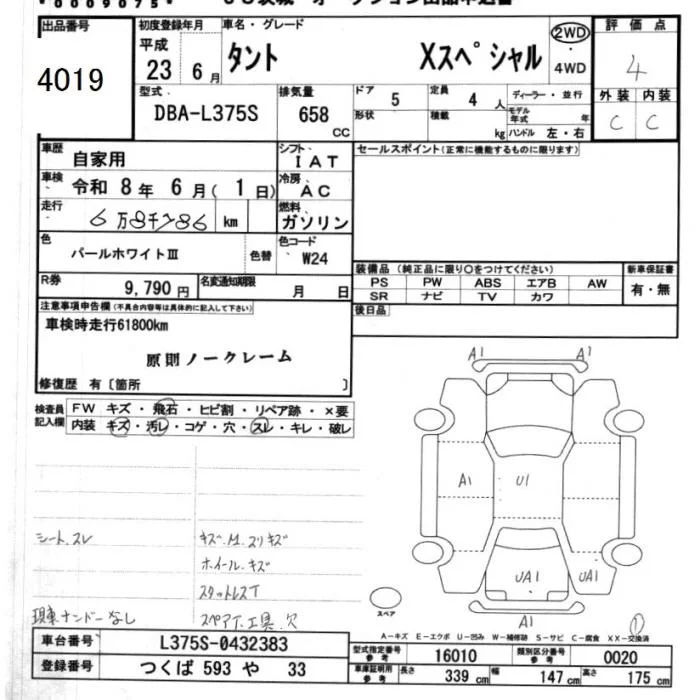 *0009075*
出品番号
4019
初度登録年月
平成
23 6月
車名・グレード
タント Xスペシャル
2WD
・
4WD
評価点
4
型式
DBA-L375S
排気量
658
CC
ドア
5
形状
定員
4人
積載
kg
ディーラー・並行
モデル年式 年
ハンドル 左・右
外装 内装
C C
車歴
自家用
シフト
IAT
セールスポイント(正常に機能するものに限ります)
車検
令和 8年 6月(1日)
冷房
AC
走行
6万8千786 km
燃料
ガソリン
色
パールホワイトⅢ
色替
色コード
W24
装備品(純正品に限り○をつけてください)
PS PW ABS エアB AW
SR ナビ TV カワ
新車保証書
有・無
R券
9,790円
名変通知期限
月 日
後日品
注意事項申告欄(不具合内容等は具体的に記入して下さい)
車検時走行61800km
原則ノークレーム
修復歴 有〔箇所 〕
検査員
記入欄
FW キズ・飛石・ヒビ割・リペア跡・×要
内装 キズ・汚レ・コゲ・穴・スレ・キレ・破レ
A1 A1
A1 U1
UA1 UA1
A1
シート、スレ
キズ、M、スリキズ
ホイール、キズ
スタットレスT
現車ナンバーなし
スペアT、工具、欠
スペア
①
A-キズ E-エクボ U-凹み W-補修跡 S-サビ C-腐食 XX-交換済
車台番号
L375S-0432383
登録番号
つくば 593 や 33
型式指定番号
参考
16010
類別区分番号
参考
0020
車庫証明用
参考
長さ
339 cm
幅
147 cm
高さ
175 cm